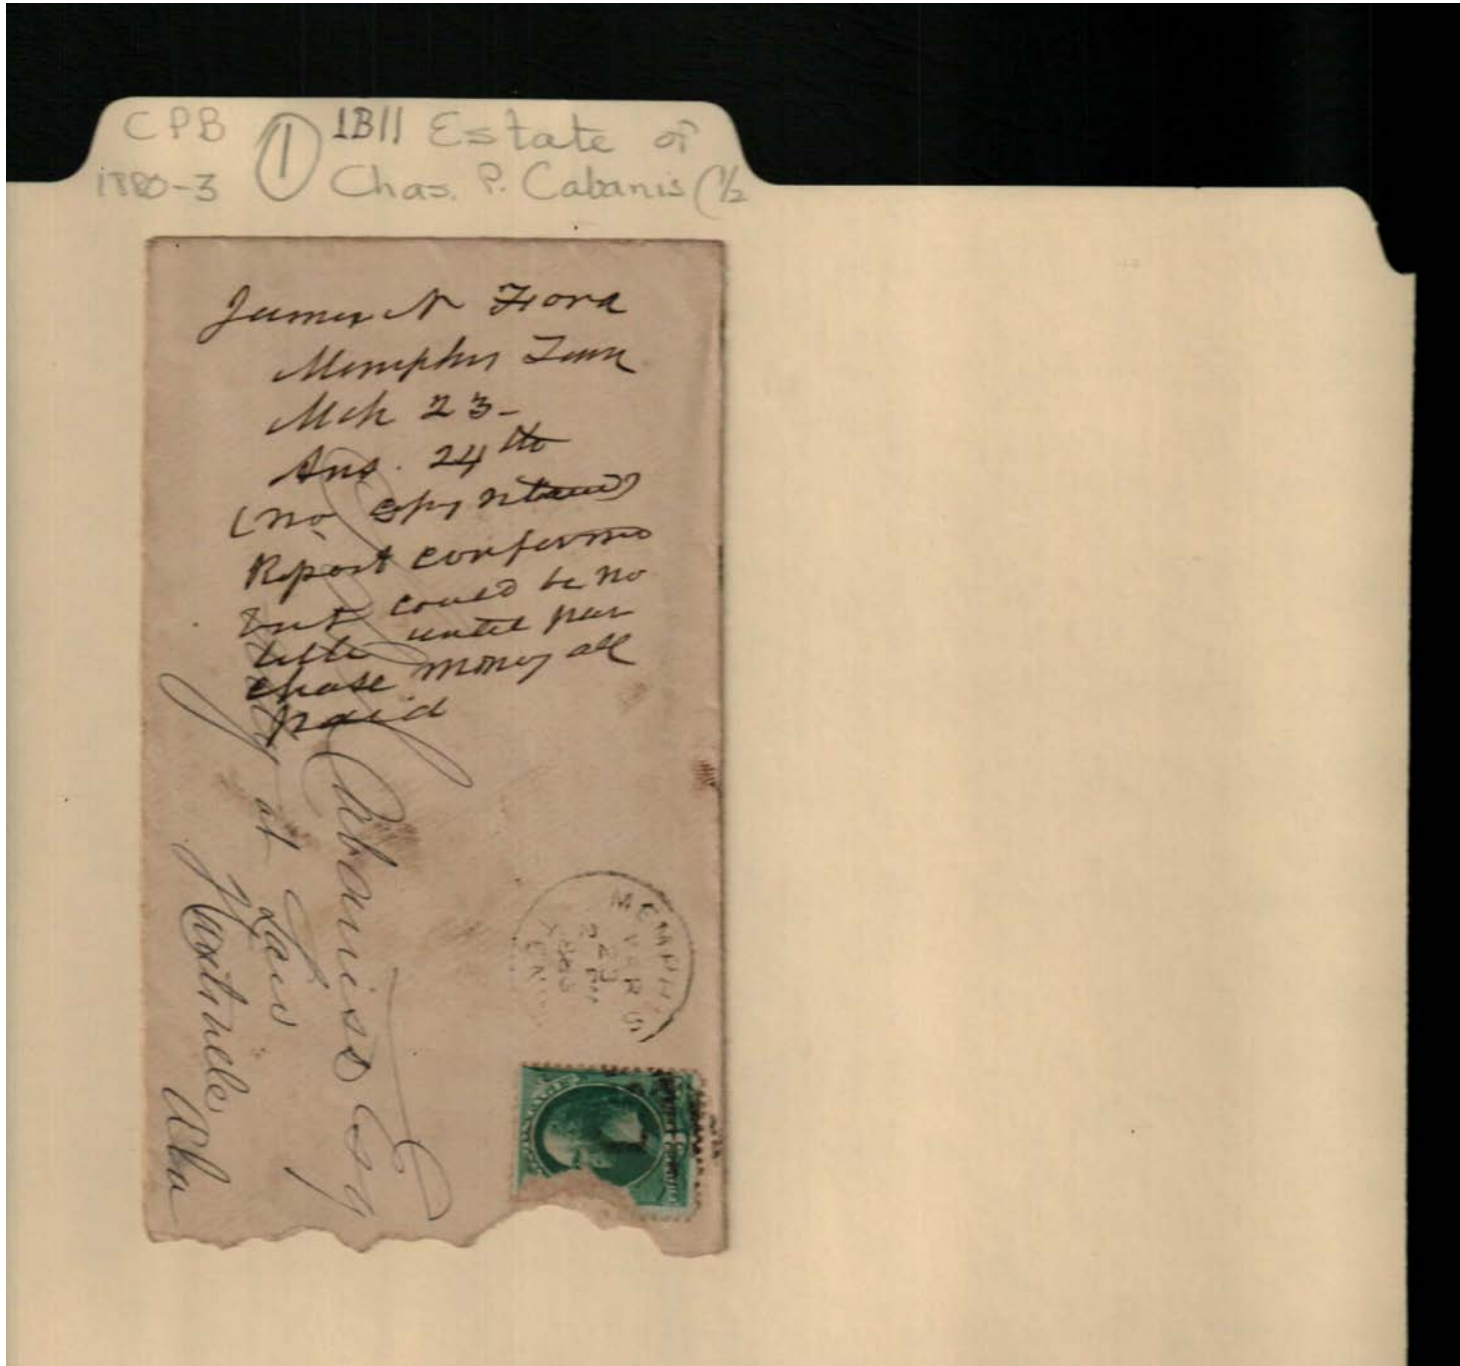 CPB
1880-3
1
1B11 Estate of
Chas. P. Cabanis (1/2
James N Ford
Memphis Tenn
Mch 23-
Ans. 24th
(no copy retained)
Report confirmed
but could be no
title until pur
chase money all
paid
Cabaniss Esq
Atty at Law
Huntsville
Ala
MEMPHIS
MAR
23
TENN